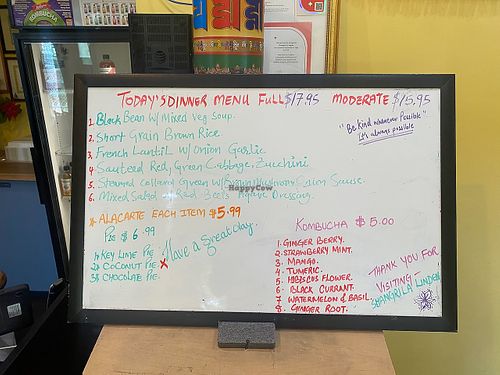 KOMBUCHA
TODAY'S DINNER MENU FULL $17.95 MODERATE $15.95
"Be Kind whenever Possible"
It's always possible
1. Black Bean w/ Mixed Veg Soup.
2. Short Grain Brown Rice
3. French Lantil w/ Onion Garlic
4. Sauteed Red, Green Cabbage, Zucchini
5. Steamed Collard Green w/ Brown Mushroom Onion Sauce.
6. Mixed Salad Red Beets Agave Dressing.
HappyCow
* ALACARTE EACH ITEM $5.99
Pie $6.99
1* KEY LIME PIE
2* COCONUT PIE X
3* CHOCOLATE PIE.
Have a Great day.
KOMBUCHA $5.00
1. GINGER BERRY.
2. STRAWBERRY MINT.
3. MANGO.
4. TUMERIC.
5. HIBISCUS FLOWER.
6. BLACK CURRANT.
7. WATERMELON & BASIL.
8. GINGER ROOT.
THANK YOU FOR
VISITING -
SHANGRILA LINDEN